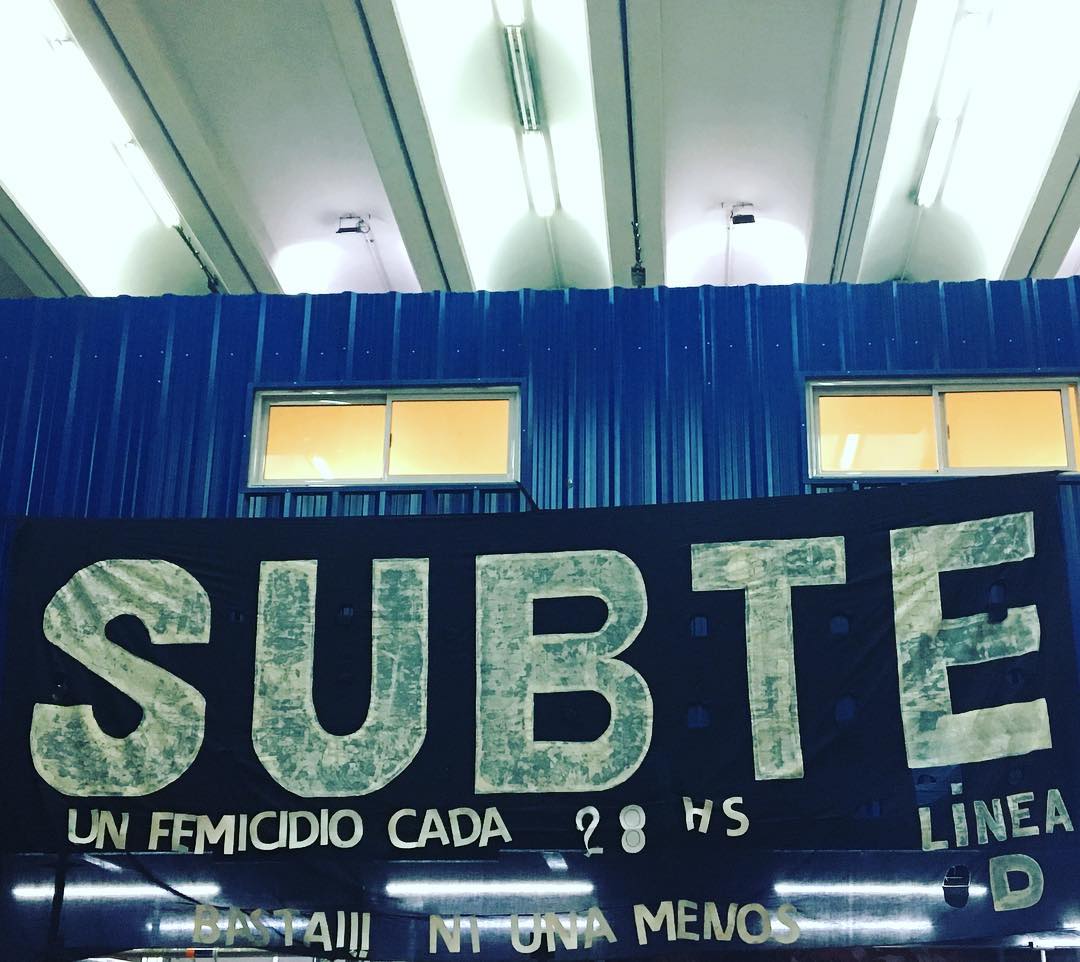 SUBTE
UN FEMICIDIO CADA 28 HS
LíNEA
D
BASTA!!! NI UNA MENOS